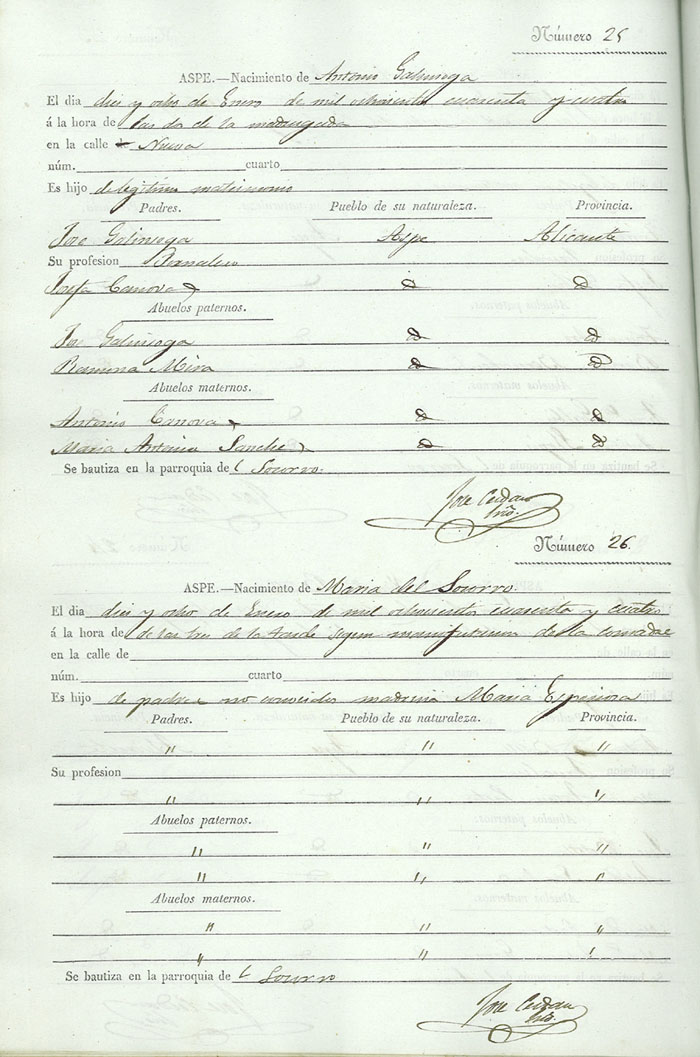 Número 25
ASPE.—Nacimiento de Antonio Galinsoga
El dia diez y ocho de Enero de mil ochocientos cuarenta y cuatro
á la hora de las dos de la madrugada
en la calle Nueva
núm. cuarto
Es hijo de legitimo matrimonio
Padres. Pueblo de su naturaleza. Provincia.
Jose Galinsoga Aspe Alicante
Su profesion
Josefa Canovas
Abuelos paternos.
Jose Galinsoga
Ramona Mira
Abuelos maternos.
Antonio Canovas
Maria Antonia Sanchez
Se bautiza en la parroquia de l Socorro.
Jose Cerdan
Srio.
Número 26.
ASPE.—Nacimiento de Maria del Socorro.
El dia diez y ocho de Enero de mil ochocientos cuarenta y cuatro
á la hora de de las tres de la tarde segun de la comadre
en la calle de
núm. cuarto
Es hijo de padres no conocidos madrina Maria
Padres. Pueblo de su naturaleza. Provincia.
" " "
Su profesion
" " "
Abuelos paternos.
" " "
" " "
Abuelos maternos.
" " "
" "
Se bautiza en la parroquia de l Socorro
Jose Cerdan
Srio.